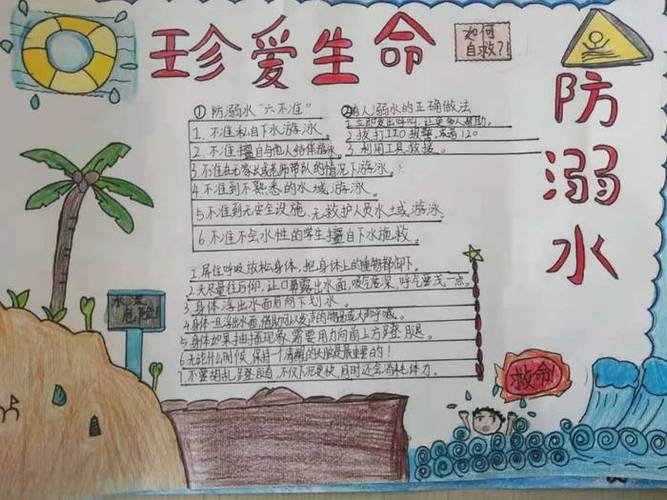 珍爱生命
如何
自救?!
防溺水
①防溺水“六不准”
1.不准私自下水游泳。
2.不准擅自与他人结伴游泳。
3.不准在无家长或老师带队的情况下游泳。
4.不准到不熟悉的水域游泳。
5.不准到无安全设施、无救护人员水域游泳
6.不准不会水性的学生擅自下水施救。
②有人溺水的正确做法
1.立即发出呼叫,让更多人帮助。
2.拨打110报警,或者120
3.利用工具救援。
1.屏住呼吸放松身体,把身体上的重物都卸下。
2.头尽量往后仰,让口鼻露出水面,吸气要深,呼气要浅一点。
3.身体浮出水面后向下划水。
4.身体一旦浮出水面,
5.身体如果抽搐现象,需要用力向前上方蹬腿
6.无论什么时候,保持一个清醒的大脑是最重要的!
7.不要胡乱
水深
危险!
救命!